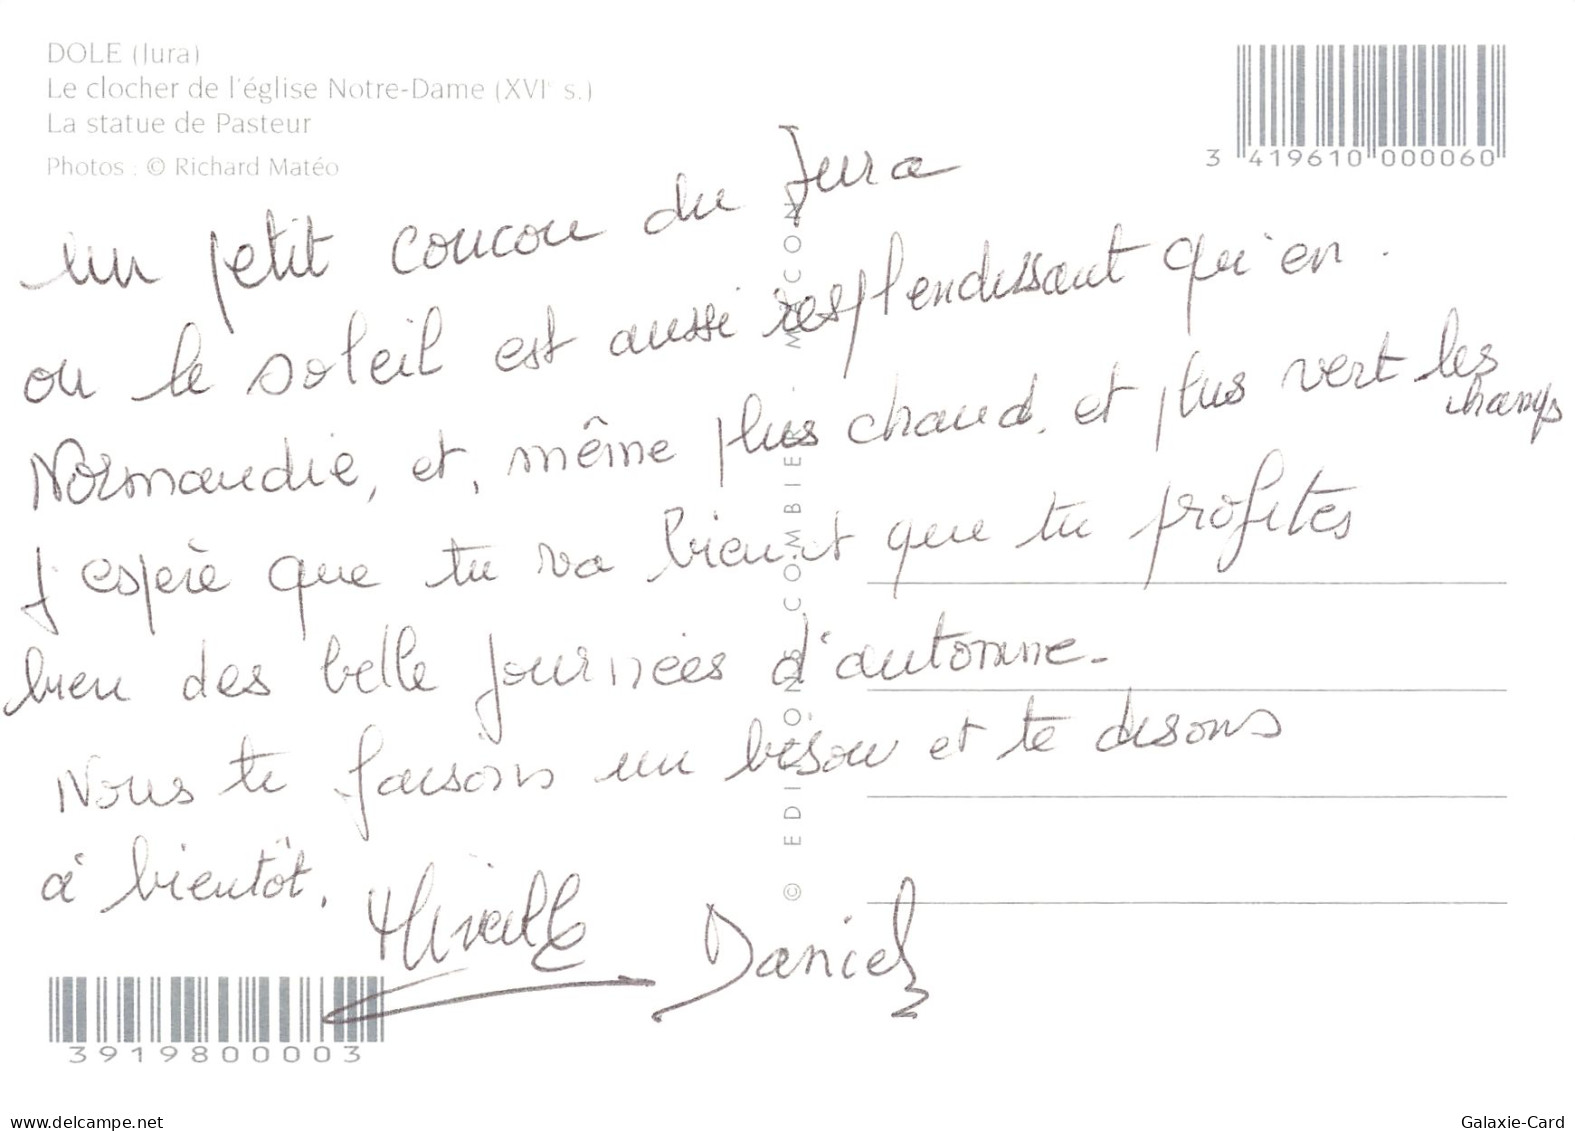 DOLE (Jura)
Le clocher de l'église Notre-Dame (XVIe s.)
La statue de Pasteur
Photos : © Richard Matéo
3 419610 000060
un petit coucou du Jura
ou le soleil est aussi resplendissant qu'en
Normandie, et, même plus chaud, et plus vert les
champs
j'espère que tu va bien et que tu profites
bien des belle journées d'automne.
Nous te faisons un bisou et te disons
à bientôt.
Mireille Daniel
© EDITIONS COMBIER MACON
3919800003
www.delcampe.net
Galaxie-Card